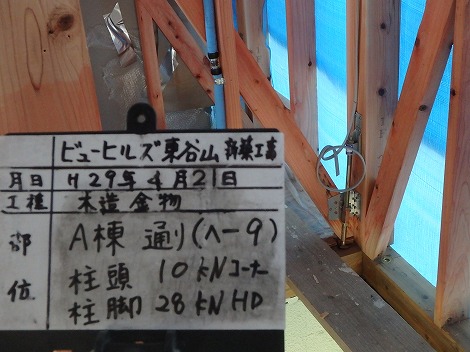 ビューヒルズ東谷山 新築工事
月日 H29年4月21日
工種 木造金物
部位 A棟 通り(へ-9)
柱頭 10kNコーナー
柱脚 28kN HD